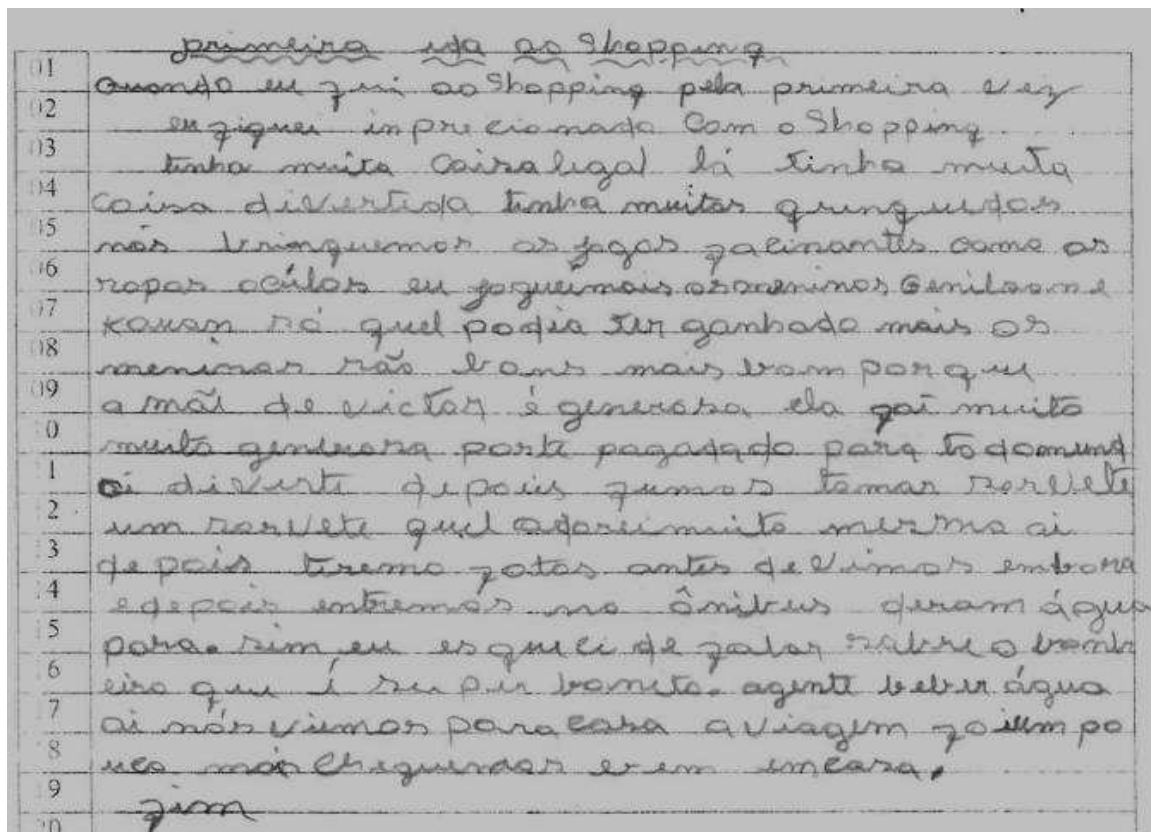 primeira ida ao Shopping
01 Quando eu fui ao Shopping pela primeira vez
02 eu fiquei inprecionado Com o Shopping
03 tinha muita Coisa legal lá tinha muita
04 Coisa divertida tinha muitos
05 nós brinquemos os jogos facinantes como os
06 ropas oculos eu joguei mais os meninos Genilson e
07 Kauan só quel podia ter ganhado mais os
08 meninos são bons mais bom porque
09 a mãe de victor é generosa ela foi muito
0 muito generosa porte pagadado para todomund
1 oi diverti depois fumos tomar sorvete
2 um sorvete quel adorei muito mesmo ai
3 depois tiremo fotos antes de vimos embora
4 e depois entremos no ônibus deram água
5 para. sim, eu esqueci de falar sobre o banh
6 eiro que é super bonito. agente beber água
7 ai nós viemos para casa a viagem foi um po
8 uco mas cheguemos bem em casa.
9 fim
20